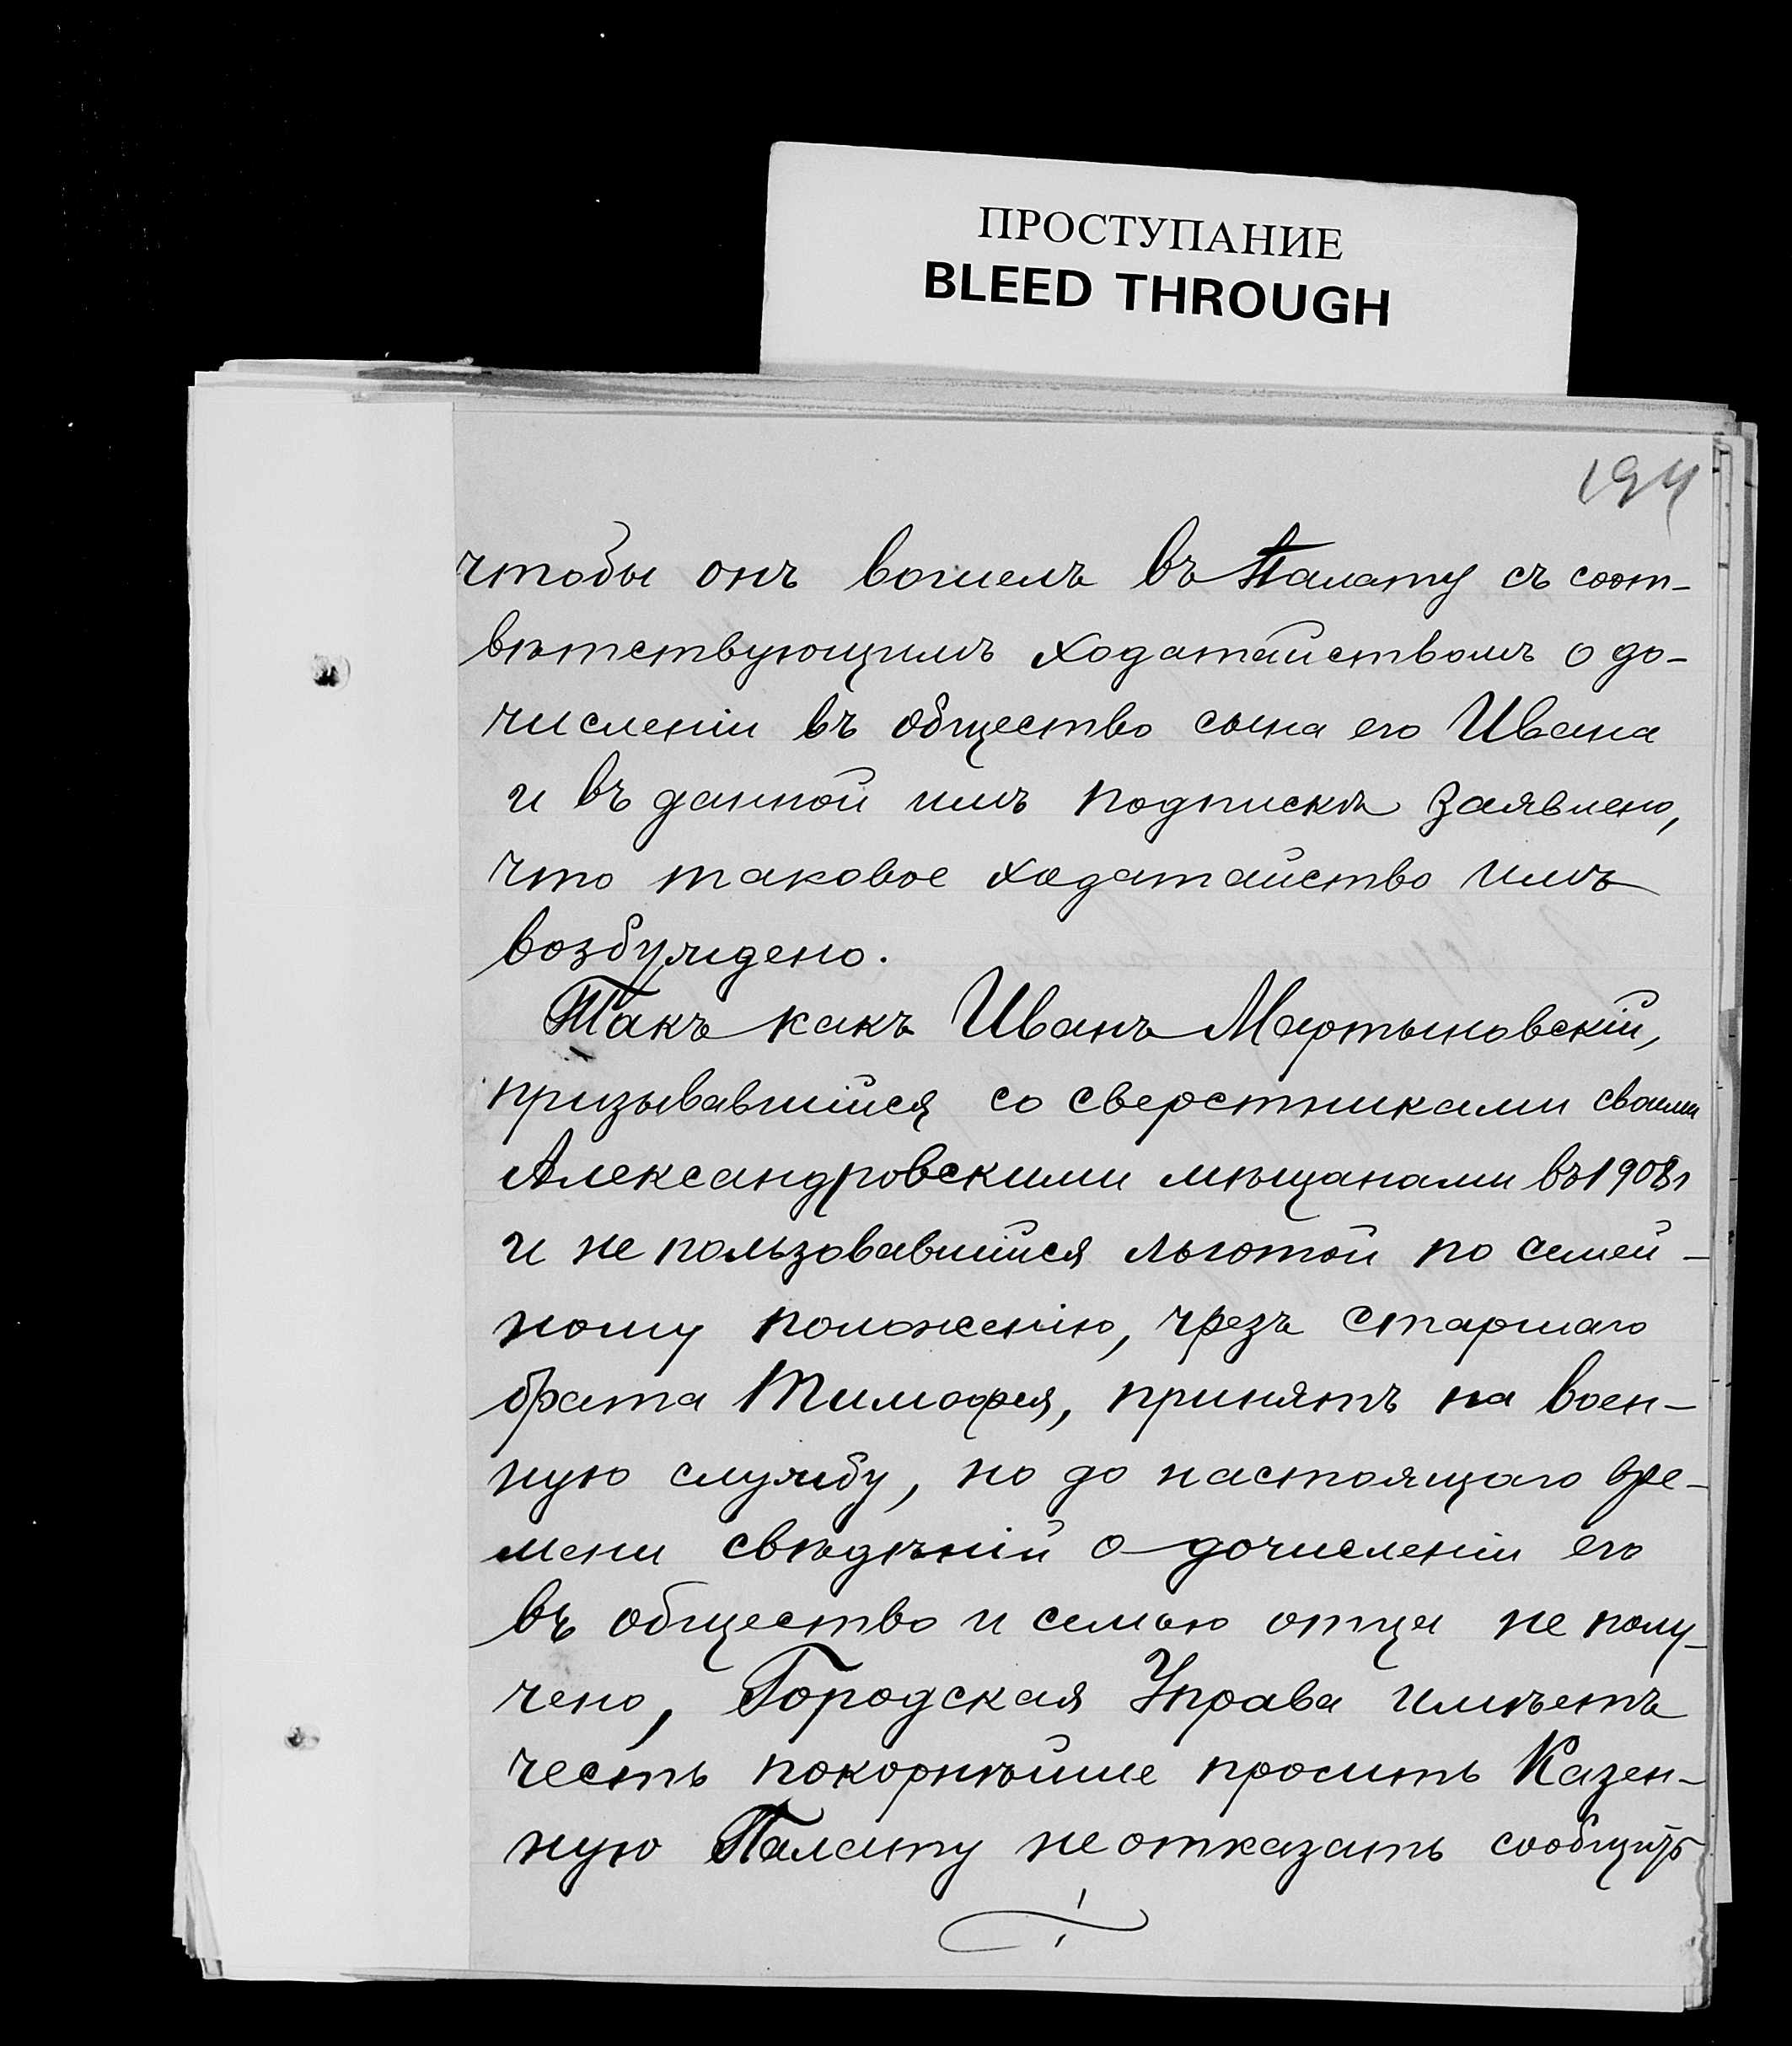 ПРОСТУПАНИЕ
BLEED THROUGH
194
чтобы онъ вошелъ въ Палату съ соот-
вѣтствующимъ ходатайствомъ о до-
численіи въ общество сына его Ивана
и въ данной имъ подпискѣ заявлено,
что таковое ходатайство имъ
возбуждено.
Такъ какъ Иванъ Мартыновскій,
призывавшійся со сверстниками своими
Александровскими мѣщанами въ 1908 г
и не пользовавшійся льготой по семей-
ному положенію, чрезъ старшаго
брата Тимофея, принятъ на воен-
ную службу, но до настоящаго вре-
мени свѣдѣній о дочисленіи его
въ общество и семью отца не полу-
чено, Городская Управа имѣетъ
честь покорнѣйше просить Казен-
ную Палату не отказать сообщить